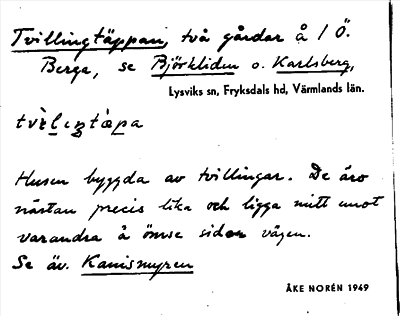 Tvillingtäppan, två gårdar å 1 Ö.
Berga, se Björkliden o. Karlsberg,
Lysviks sn, Fryksdals hd, Värmlands län.
Husen byggda av tvillingar. De äro
nästan precis lika och ligga mitt emot
varandra å ömse sidor vägen.
Se äv. Kanismyren
ÅKE NORÉN 1949